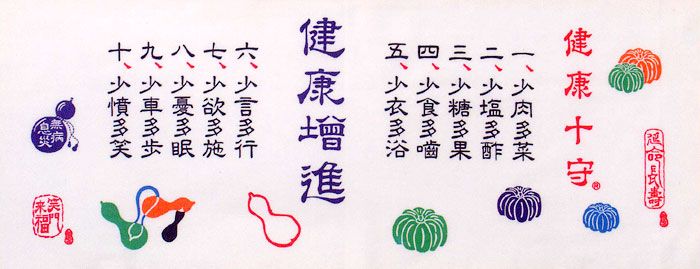 健康十守®
一、少肉多菜
二、少塩多酢
三、少糖多果
四、少食多嚙
五、少衣多浴
健康増進
六、少言多行
七、少欲多施
八、少憂多眠
九、少車多歩
十、少憤多笑
延命長壽
無病
息災
笑門
来福